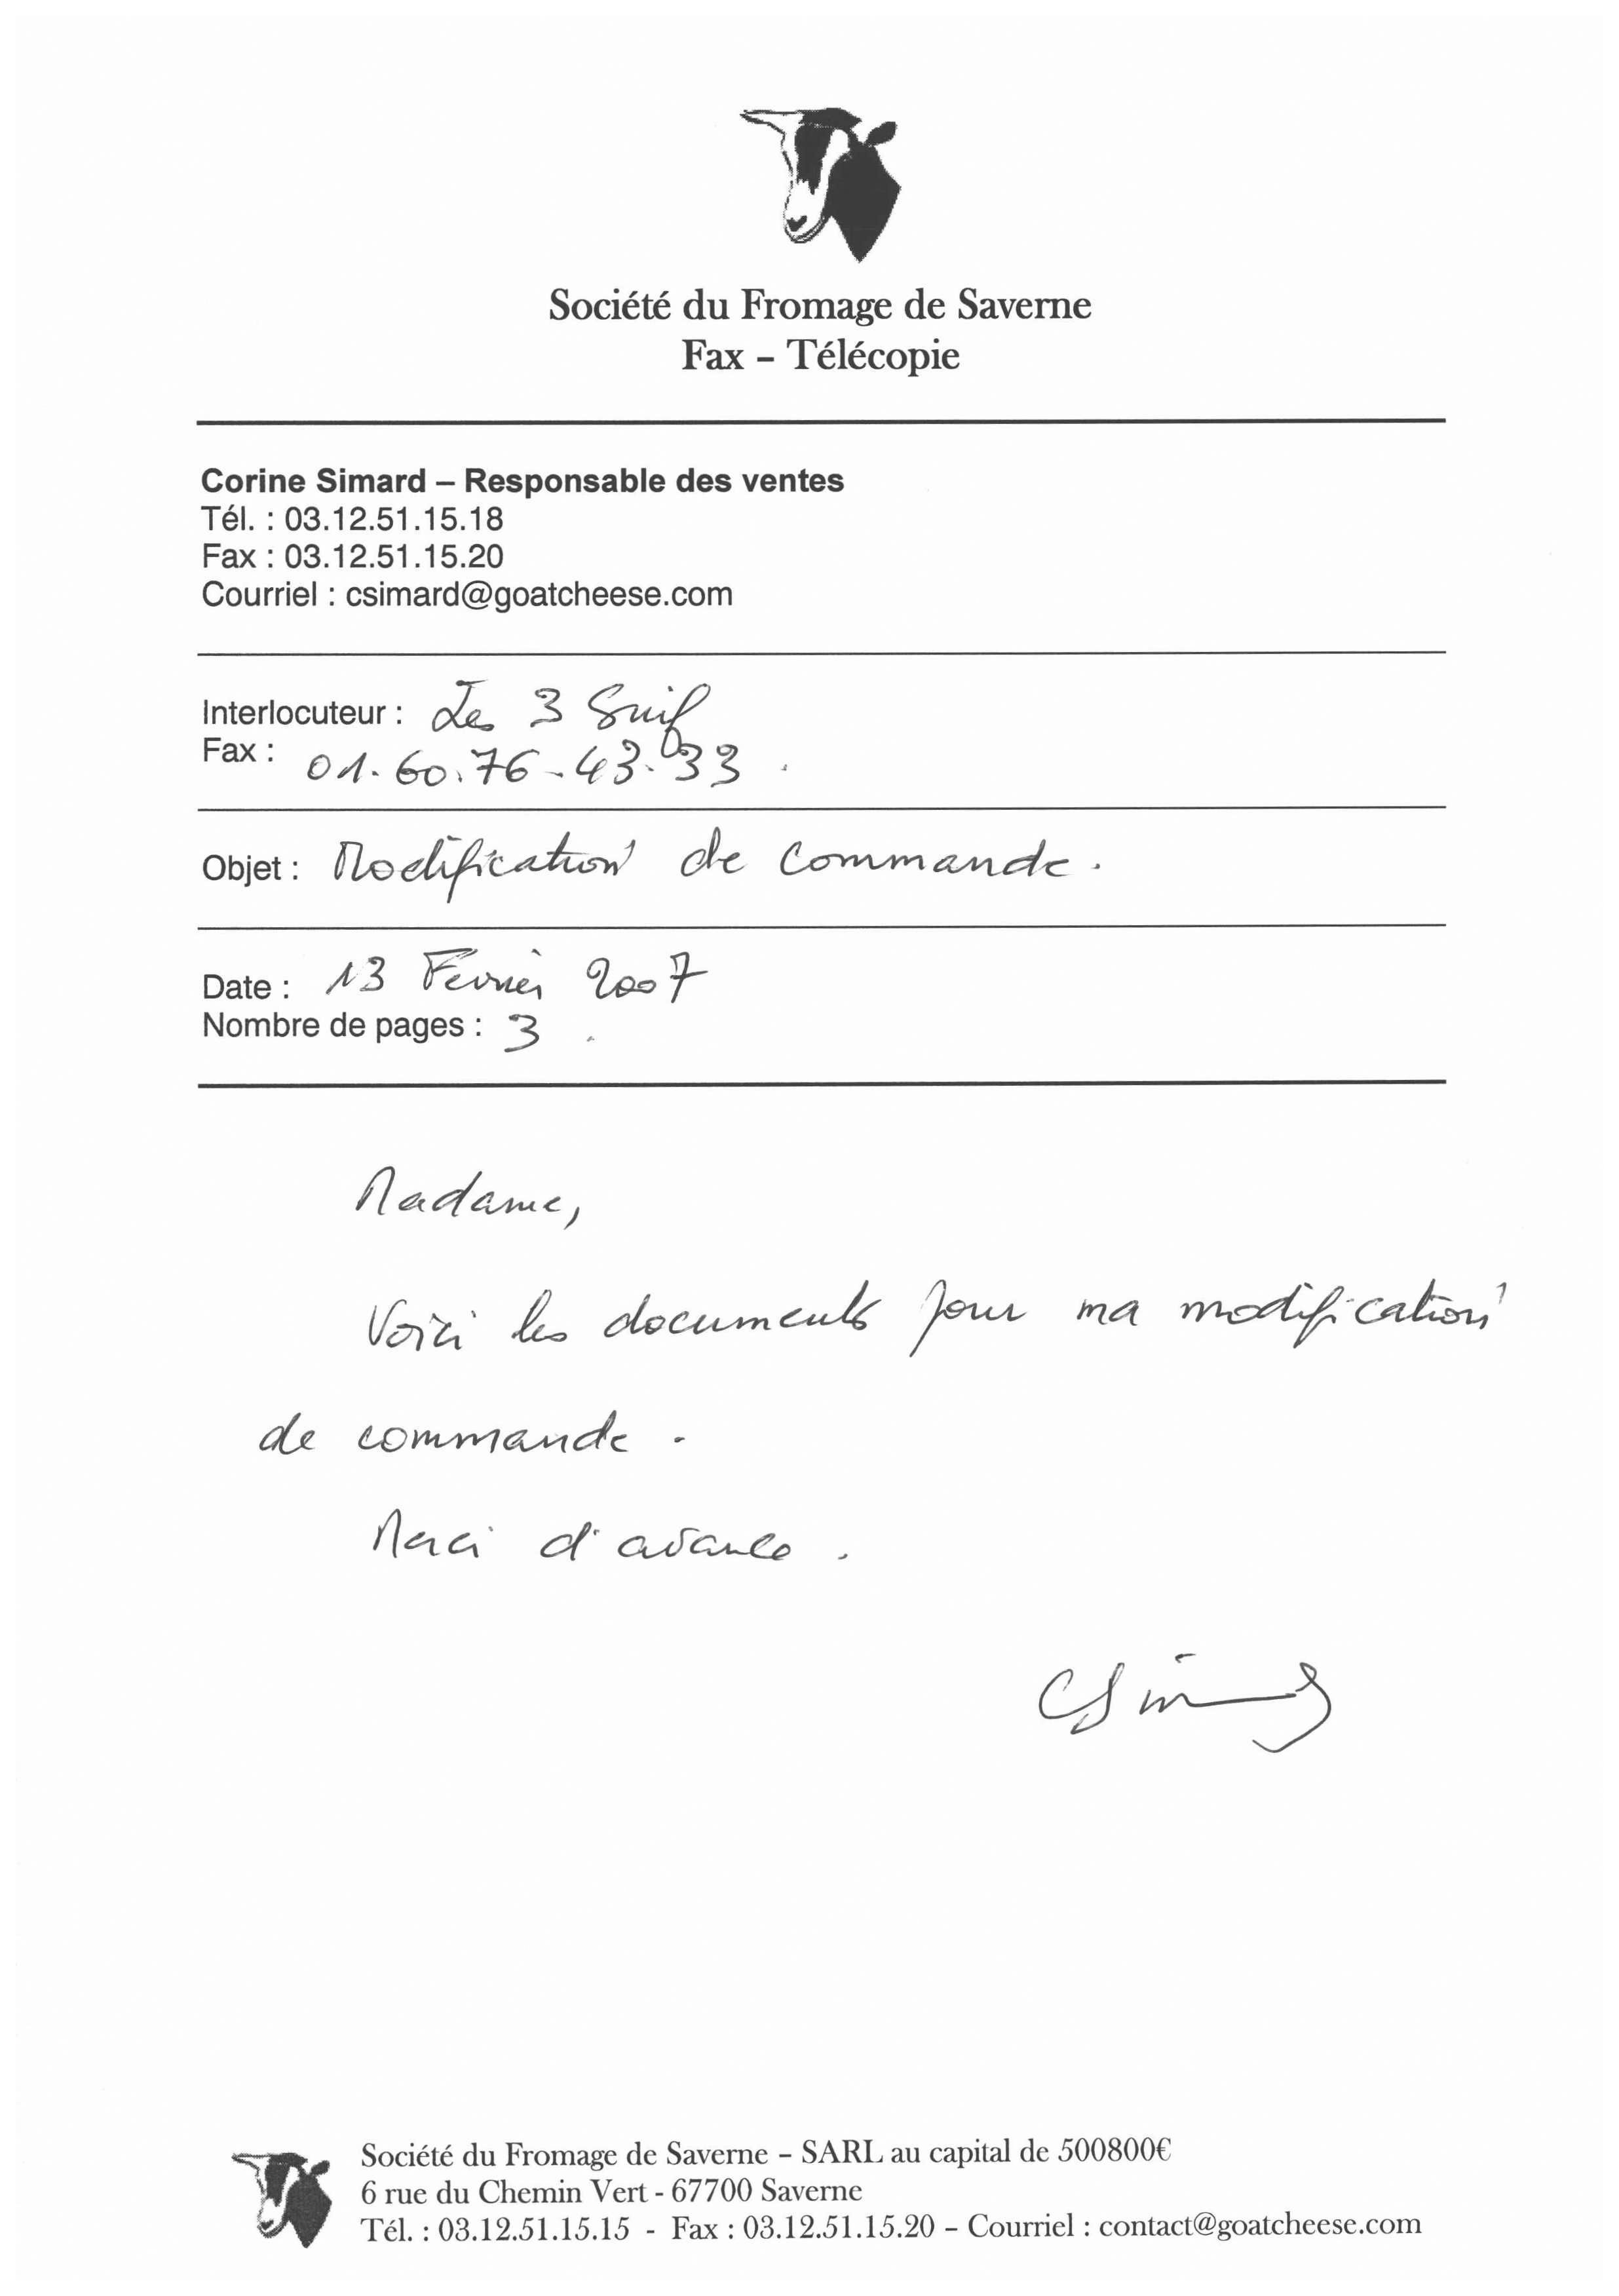 Société du Fromage de Saverne
Fax – Télécopie
Corine Simard – Responsable des ventes
Tél. : 03.12.51.15.18
Fax : 03.12.51.15.20
Courriel : csimard@goatcheese.com
Interlocuteur : Les 3 Suif
Fax : 01.60.76-43.33
Objet : Modification de commande.
Date : 13 Fevrier 2007
Nombre de pages : 3
Madame,
Voici les documents pour ma modification
de commande.
Merci d'avance.
CSimard
Société du Fromage de Saverne – SARL au capital de 500800€
6 rue du Chemin Vert - 67700 Saverne
Tél. : 03.12.51.15.15 - Fax : 03.12.51.15.20 – Courriel : contact@goatcheese.com